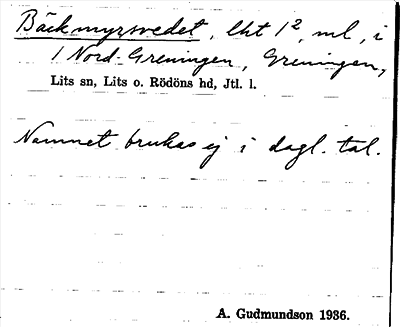 Bäckmyrsvedet, lht 1², ml, i
1 Nord-Greningen, Greningen,
Lits sn, Lits o. Rödöns hd, Jtl. l.
Namnet brukas ej i dagl. tal.
A. Gudmundson 1936.